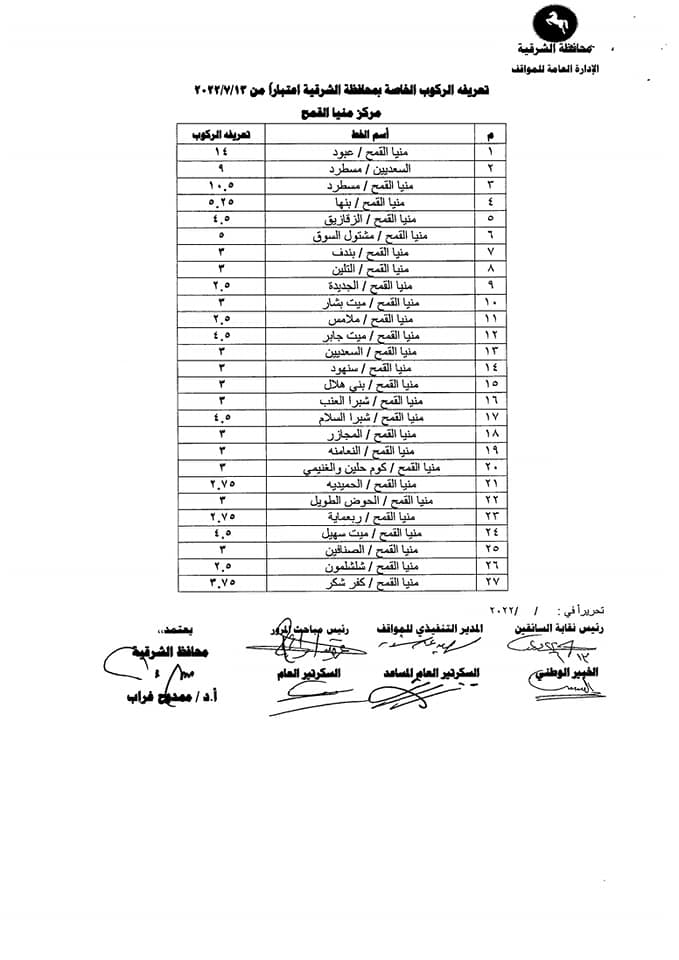 محافظة الشرقية
الإدارة العامة للمواقف
تعريفه الركوب الخاصة بمحافظة الشرقية اعتباراً من ٢٠٢٢/٧/١٣
مركز منيا القمح
م أسم الخط تعريفه الركوب
١ منيا القمح / عبود ١٤
٢ السعديين / مسطرد ٩
٣ منيا القمح / مسطرد ١٠.٥
٤ منيا القمح / بنها ٥.٢٥
٥ منيا القمح / الزقازيق ٤.٥
٦ منيا القمح / مشتول السوق ٥
٧ منيا القمح / بندف ٣
٨ منيا القمح / التلين ٣
٩ منيا القمح / الجديدة ٢.٥
١٠ منيا القمح / ميت بشار ٣
١١ منيا القمح / ملامس ٢.٥
١٢ منيا القمح / ميت جابر ٤.٥
١٣ منيا القمح / السعديين ٣
١٤ منيا القمح / سنهود ٣
١٥ منيا القمح / بني هلال ٣
١٦ منيا القمح / شبرا العنب ٣
١٧ منيا القمح / شبرا السلام ٤.٥
١٨ منيا القمح / المجازر ٣
١٩ منيا القمح / النعامنه ٣
٢٠ منيا القمح / كوم حلين والغنيمي ٣
٢١ منيا القمح / الحميديه ٢.٧٥
٢٢ منيا القمح / الحوض الطويل ٣
٢٣ منيا القمح / ربعماية ٢.٧٥
٢٤ منيا القمح / ميت سهيل ٤.٥
٢٥ منيا القمح / الصنافين ٣
٢٦ منيا القمح / شلشلمون ٢.٥
٢٧ منيا القمح / كفر شكر ٣.٧٥
تحريراً في : / / ٢٠٢٢
رئيس نقابة السائقين المدير التنفيذي للمواقف رئيس مباحث المرور يعتمد،،
محافظ الشرقية
الخبير الوطني السكرتير العام المساعد السكرتير العام
أ.د / ممدوح غراب